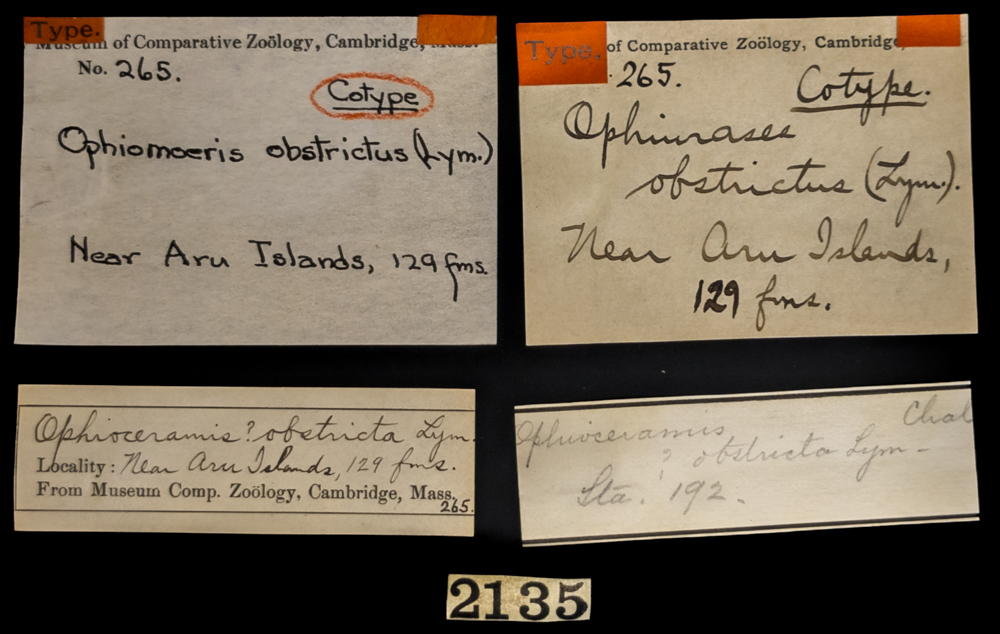 Type.
Museum of Comparative Zoölogy, Cambridge, Mass.
No. 265.
Cotype
Ophiomoeris obstrictus (Lym.)
Near Aru Islands, 129 fms.
Type.
of Comparative Zoölogy, Cambridge,
265.
Cotype.
Ophiurases
obstrictus (Lym.).
Near Aru Islands,
129 fms.
Ophioceramis? obstricta Lym.
Locality: Near Aru Islands, 129 fms.
From Museum Comp. Zoölogy, Cambridge, Mass.
265.
Ophioceramis Chal
? obstricta Lym-
Sta. 192.
2135